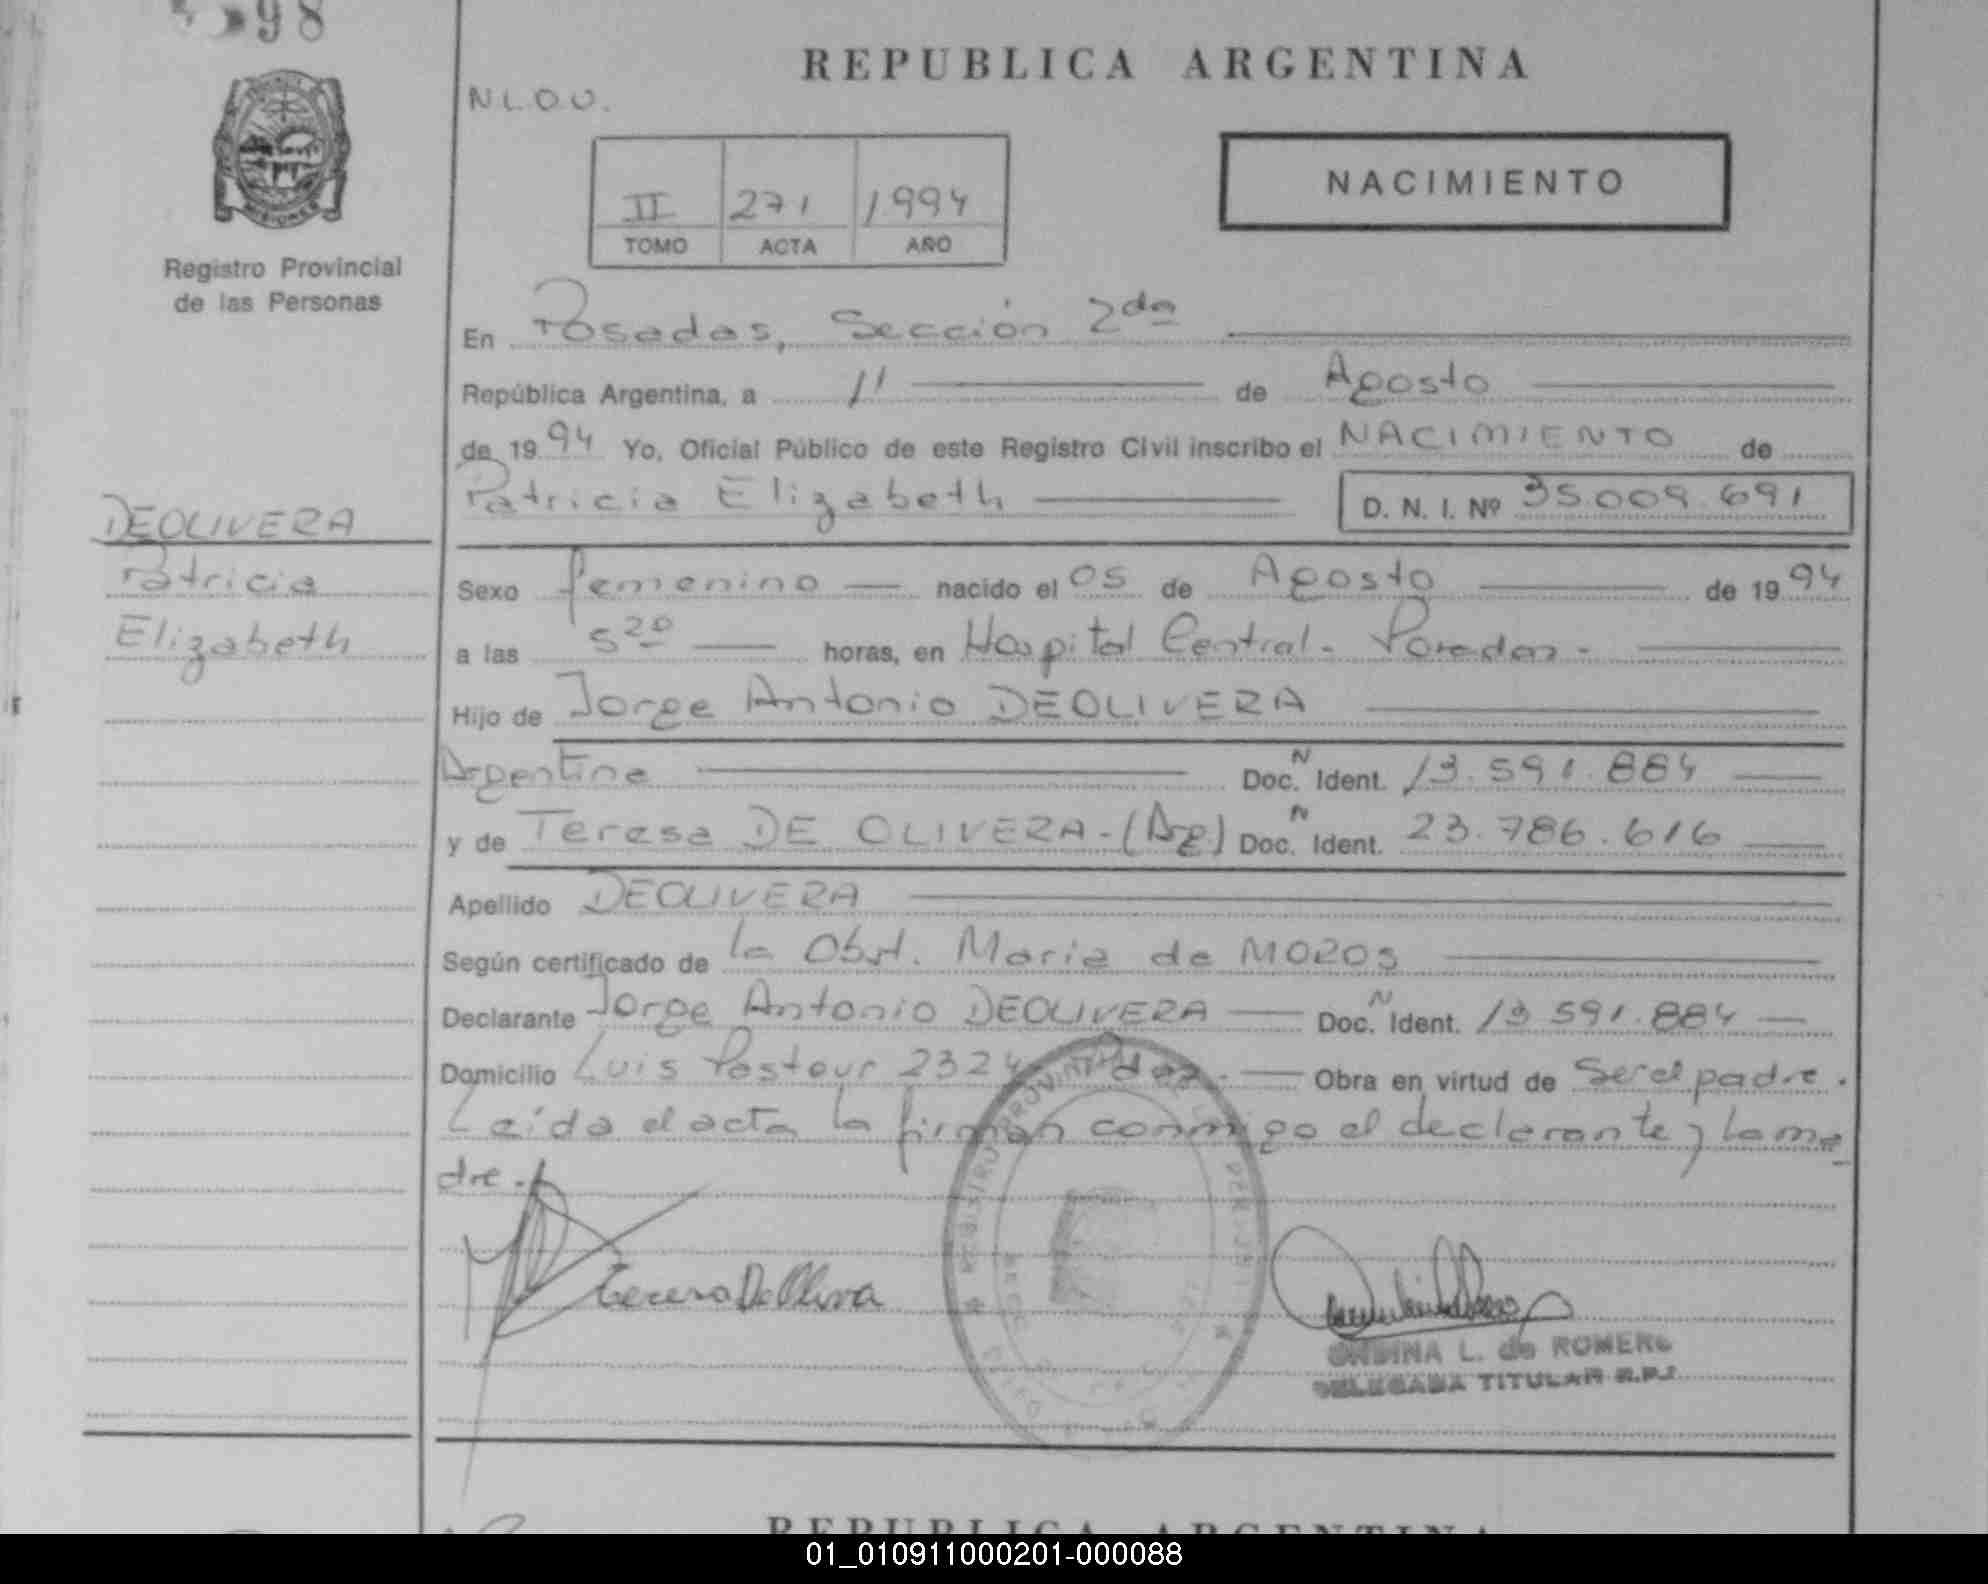 98
REPUBLICA ARGENTINA
N.L.O.U.
MISIONES
Registro Provincial
de las Personas
II 271 1994
TOMO ACTA AÑO
NACIMIENTO
En Posadas, Sección 2da
República Argentina, a 11 de Agosto
de 1994 Yo, Oficial Público de este Registro Civil inscribo el NACIMIENTO de
Patricia Elizabeth D. N. I. Nº 35.009.691
DEOLIVERA
Patricia
Elizabeth
Sexo femenino nacido el 05 de Agosto de 1994
a las 5 20 horas, en Hospital Central - Posadas -
Hijo de Jorge Antonio DEOLIVERA
Argentina Doc. N Ident. 13.591.884
y de Teresa DE OLIVERA - (Arg) Doc. N Ident. 23.786.616
Apellido DEOLIVERA
Según certificado de la Obst. Maria de MOROS
Declarante Jorge Antonio DEOLIVERA Doc. N Ident. 13.591.884
Domicilio Luis Pasteur 2324 Pdas. Obra en virtud de Ser el padre.
Leída el acta la firman conmigo el declarante y la ma
dre.
ONDINA L. de ROMERO
DELEGADA TITULAR R.P.
REPUBLICA ARGENTINA
01_010911000201-000088